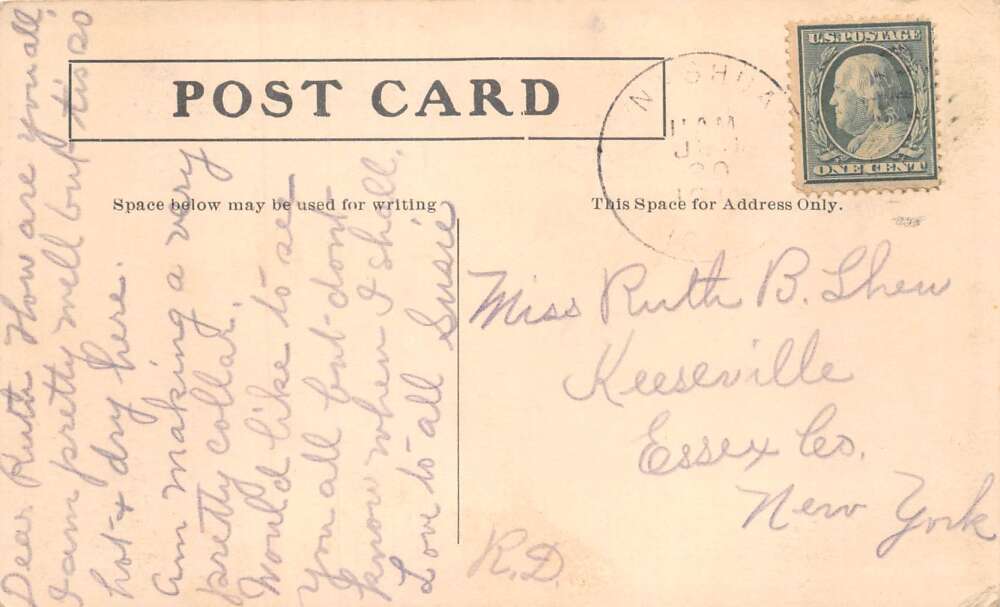 POST CARD
U.S. POSTAGE
ONE CENT
NASHUA
Space below may be used for writing
This Space for Address Only.
Dear Ruth How are you all,
I am pretty well but tis so
hot & dry here.
Am making a very
pretty collar.
Would like to see
you all but dont
know when I shall.
Love to all Susie
Miss Ruth B. Shew
Keeseville
Essex Co.
New York
R.D.